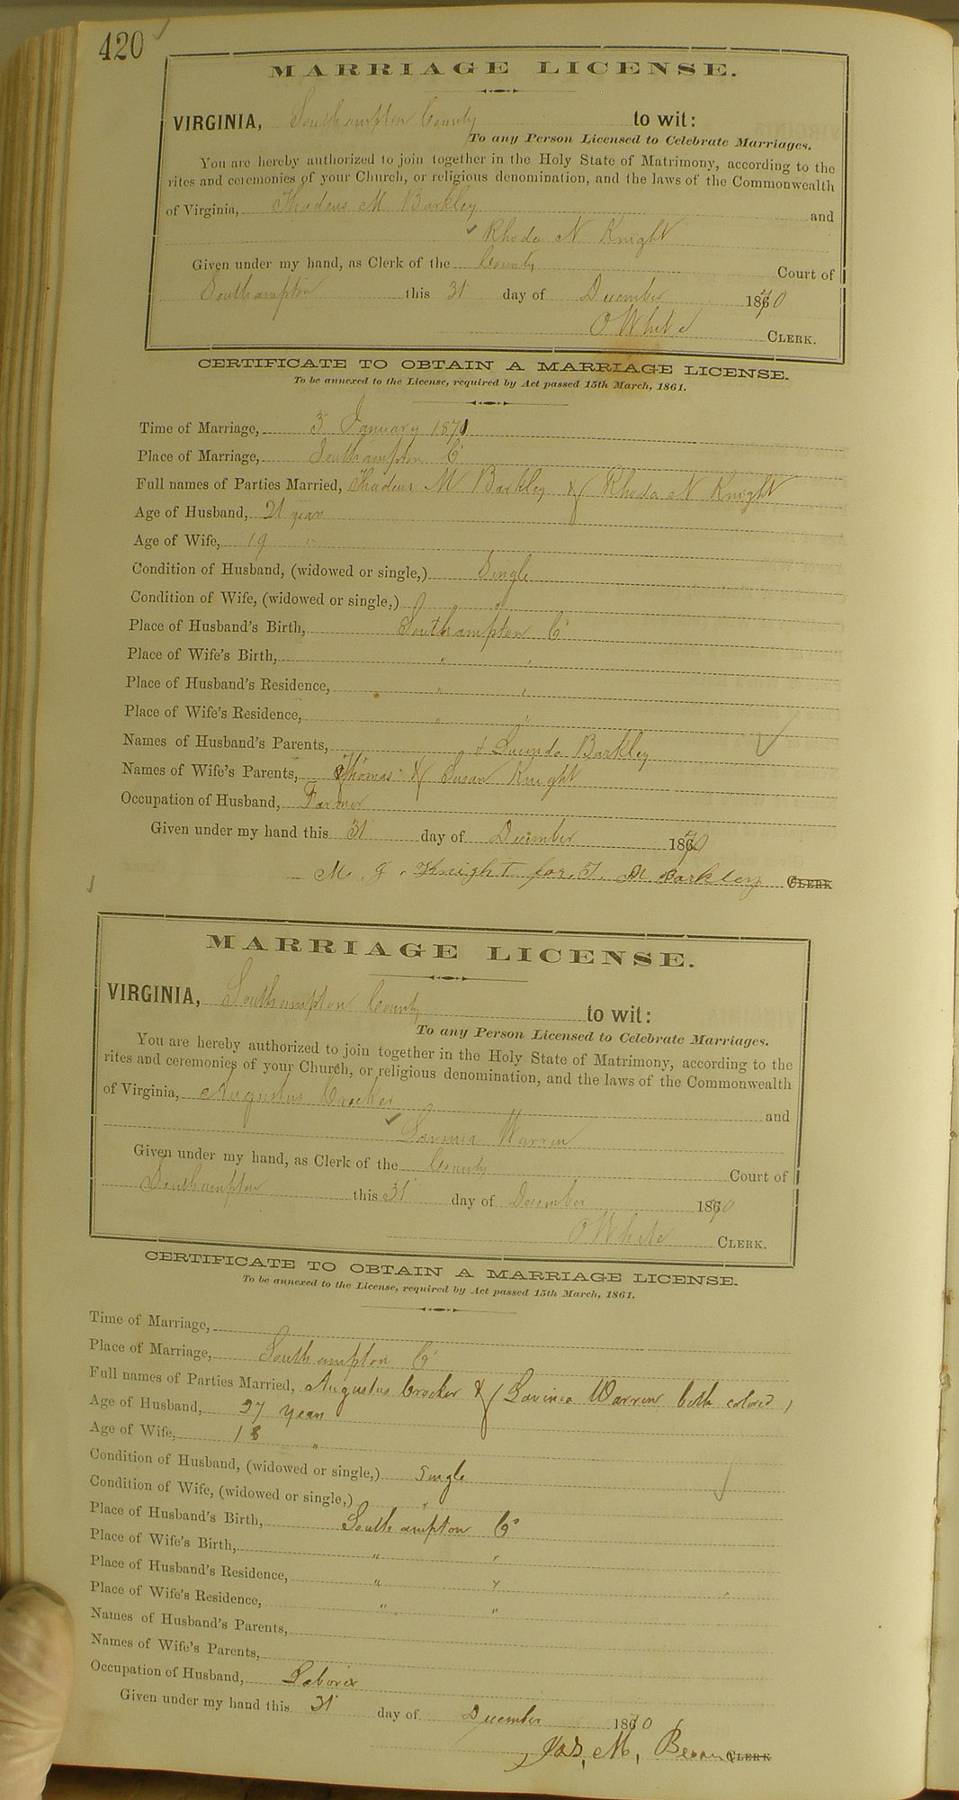 420
MARRIAGE LICENSE.
VIRGINIA, Southampton County to wit:
To any Person Licensed to Celebrate Marriages.
You are hereby authorized to join together in the Holy State of Matrimony, according to the
rites and ceremonies of your Church, or religious denomination, and the laws of the Commonwealth
of Virginia, Thadeus M Barkley and
Rhoda N Knight
Given under my hand, as Clerk of the County Court of
Southampton this 31 day of December 1870
O White CLERK.
CERTIFICATE TO OBTAIN A MARRIAGE LICENSE.
To be annexed to the License, required by Act passed 15th March, 1861.
Time of Marriage, 3 January 1871
Place of Marriage, Southampton Co
Full names of Parties Married, Thadeus M Barkley & Rhoda N Knight
Age of Husband, 21 years
Age of Wife, 19 "
Condition of Husband, (widowed or single,) Single
Condition of Wife, (widowed or single,) "
Place of Husband's Birth, Southampton Co
Place of Wife's Birth, " "
Place of Husband's Residence, " "
Place of Wife's Residence, " "
Names of Husband's Parents, & Lucinda Barkley
Names of Wife's Parents, Thomas & Susan Knight
Occupation of Husband, Farmer
Given under my hand this 31 day of December 1870
M. J. Knight for T. M Barkley CLERK
MARRIAGE LICENSE.
VIRGINIA, Southampton County to wit:
To any Person Licensed to Celebrate Marriages.
You are hereby authorized to join together in the Holy State of Matrimony, according to the
rites and ceremonies of your Church, or religious denomination, and the laws of the Commonwealth
of Virginia, Augustus Crocker and
Lavinia Warren
Given under my hand, as Clerk of the County Court of
Southampton this 31 day of December 1870
O White CLERK.
CERTIFICATE TO OBTAIN A MARRIAGE LICENSE.
To be annexed to the License, required by Act passed 15th March, 1861.
Time of Marriage,
Place of Marriage, Southampton Co
Full names of Parties Married, Augustus Crocker & (Lavinia Warren both colored)
Age of Husband, 27 years
Age of Wife, 18 "
Condition of Husband, (widowed or single,) Single
Condition of Wife, (widowed or single,) "
Place of Husband's Birth, Southampton Co
Place of Wife's Birth, " "
Place of Husband's Residence, " "
Place of Wife's Residence, " "
Names of Husband's Parents,
Names of Wife's Parents,
Occupation of Husband, Laborer
Given under my hand this 31 day of December 1870
Jas. M. CLERK